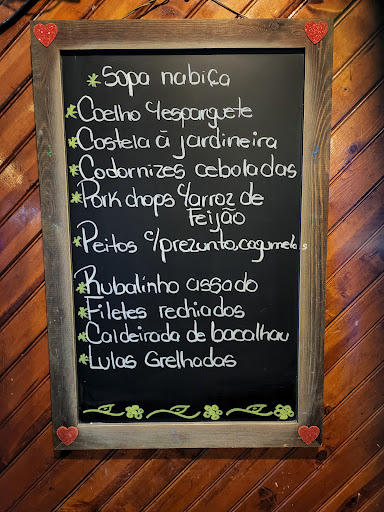 *Sopa nabiça
*Coelho c/esparguete
*Costela à jardineira
*Codornizes ceboladas
*Pork chops c/arroz de
Feijão
*Peitos c/prezunto,cogumelos
*Rubalinho assado
*Filetes rechiados
*Caldeirada de bacalhau
*Lulas Grelhadas